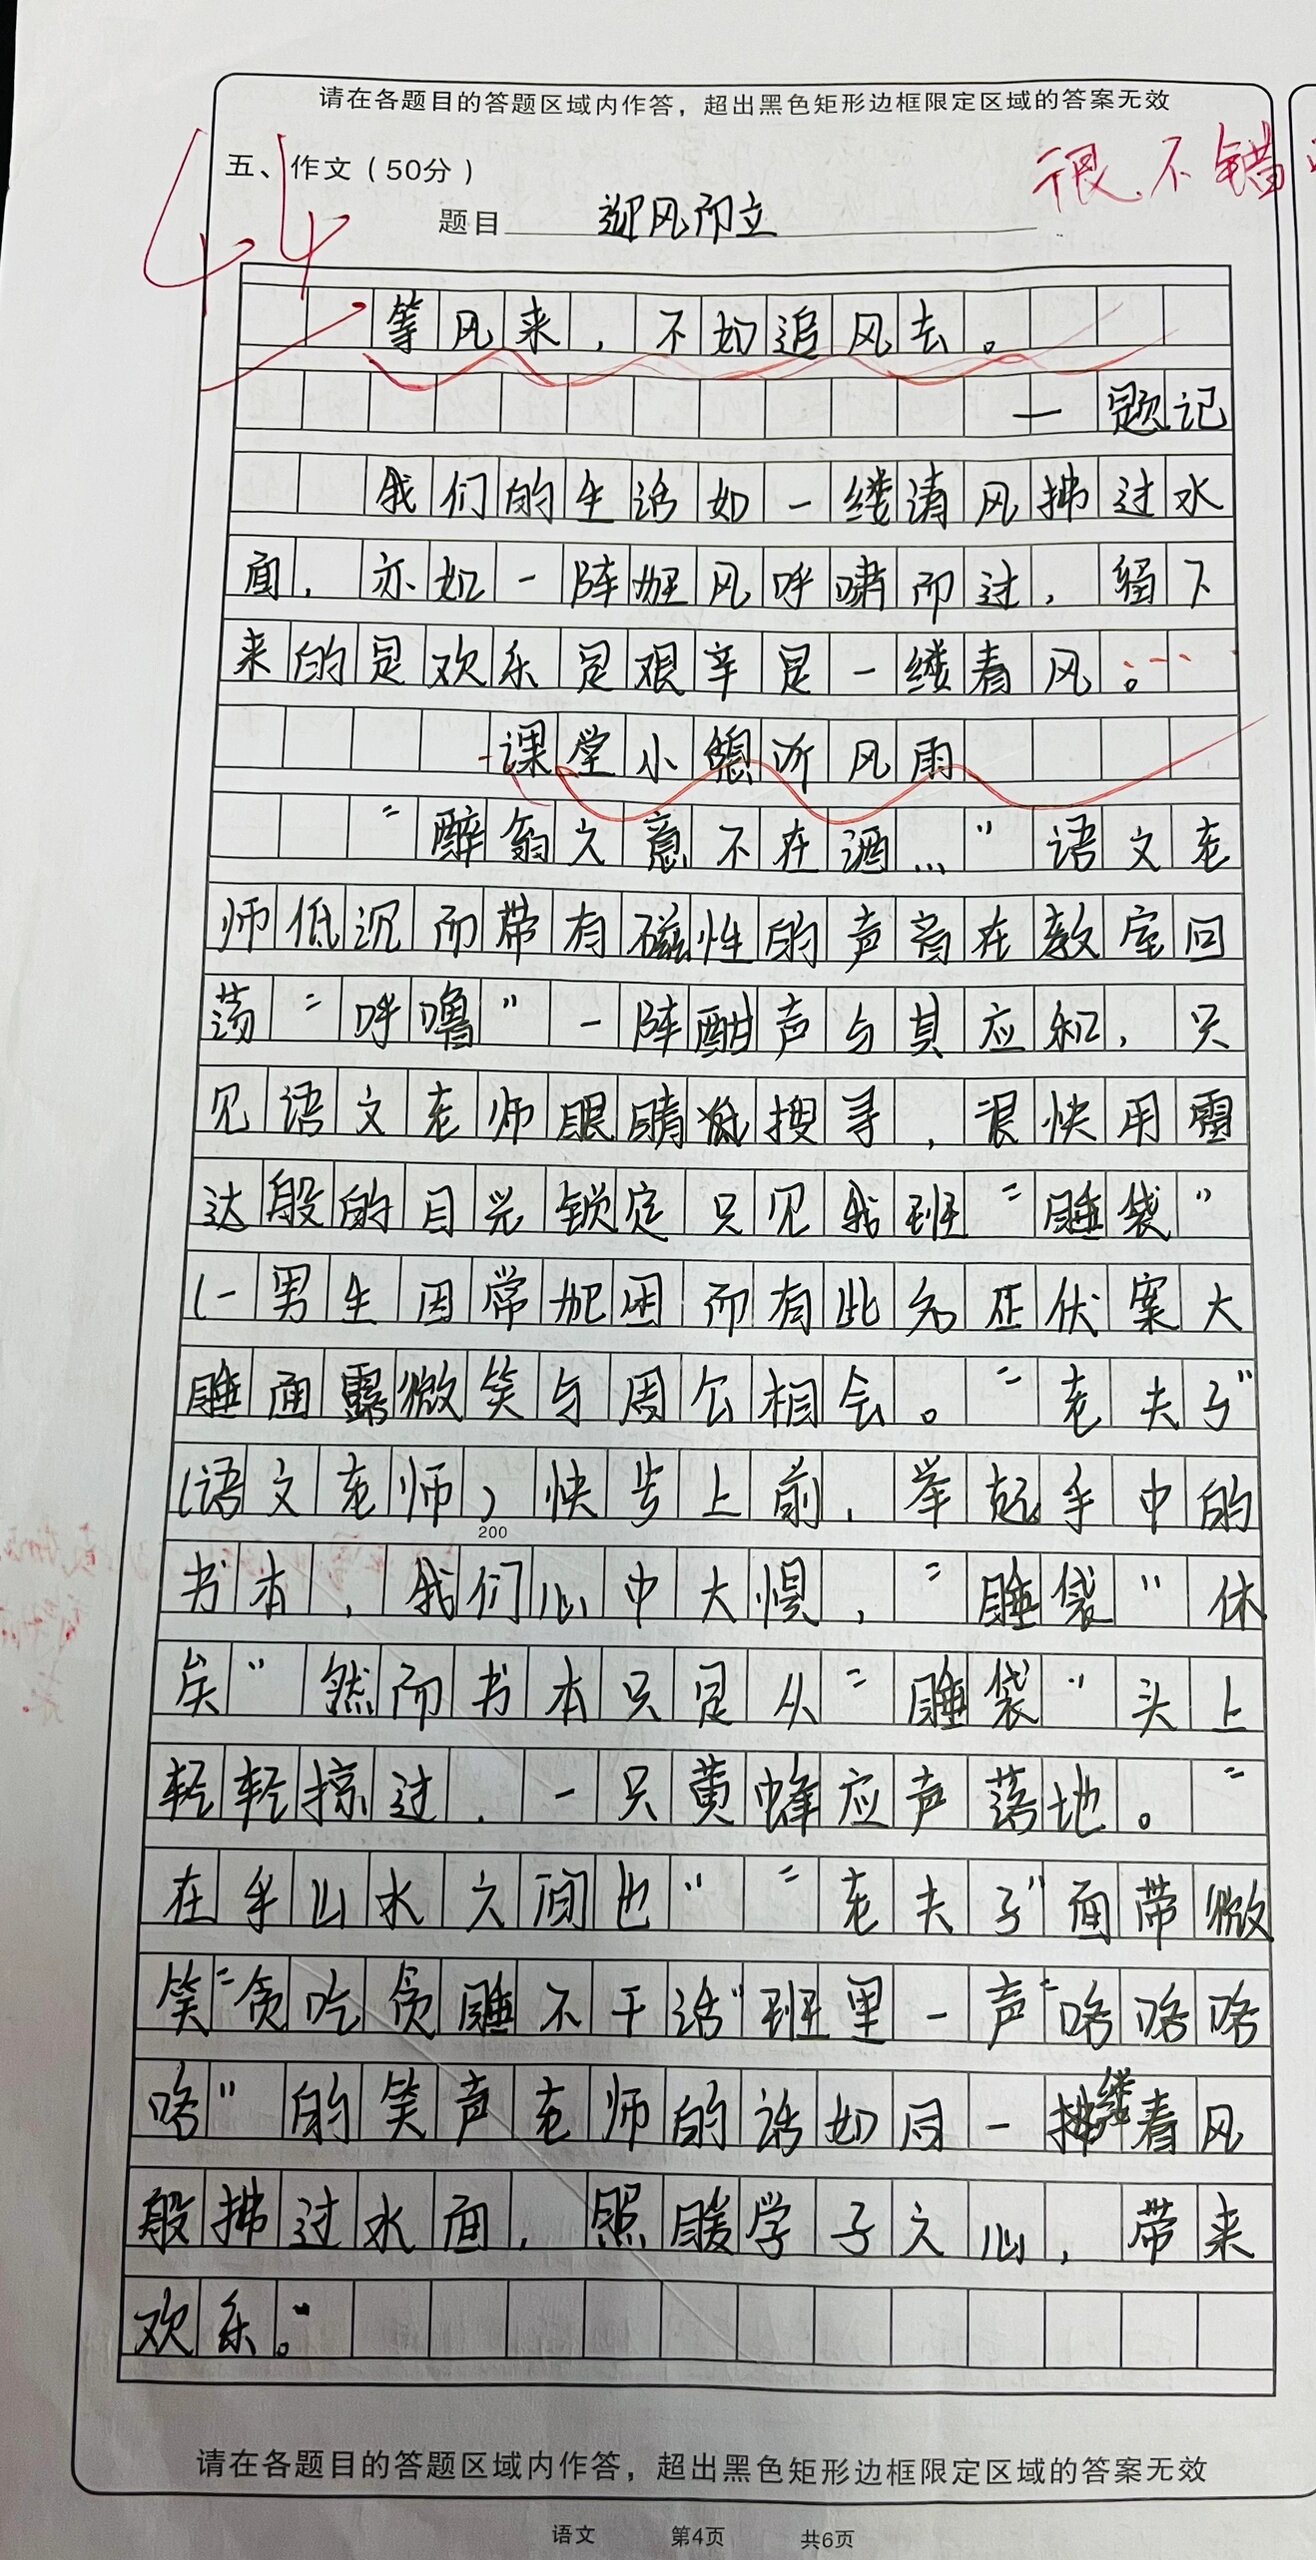 请在各题目的答题区域内作答，超出黑色矩形边框限定区域的答案无效
五、作文（50分）
44
很不错
题目 迎风而立
等风来，不如追风去。
一题记
我们的生活如一缕清风拂过水
面，亦如一阵狂风呼啸而过，留下
来的是欢乐是艰辛是一缕春风。
课堂小憩听风雨
“醉翁之意不在酒…”语文老
师低沉而带有磁性的声音在教室回
荡“呼噜”一阵酣声与其应和，只
见语文老师眼睛微搜寻，很快用雷
达般的目光锁定只见我班“睡袋”
（一男生因常犯困而有此名正伏案大
睡面露微笑与周公相会。“老夫子”
（语文老师）快步上前，举起手中的
200
书本，我们心中大惧，“睡袋”休
矣”然而书本只是从“睡袋”头上
轻轻掠过，一只黄蜂应声落地。“
在乎山水之间也”“老夫子”面带微
笑“贪吃贪睡不干活”班里一声“咯咯咯
咯”的笑声老师的话如同一缕春风
般拂过水面，照暖学子之心，带来
欢乐。
请在各题目的答题区域内作答，超出黑色矩形边框限定区域的答案无效
语文 第4页 共6页